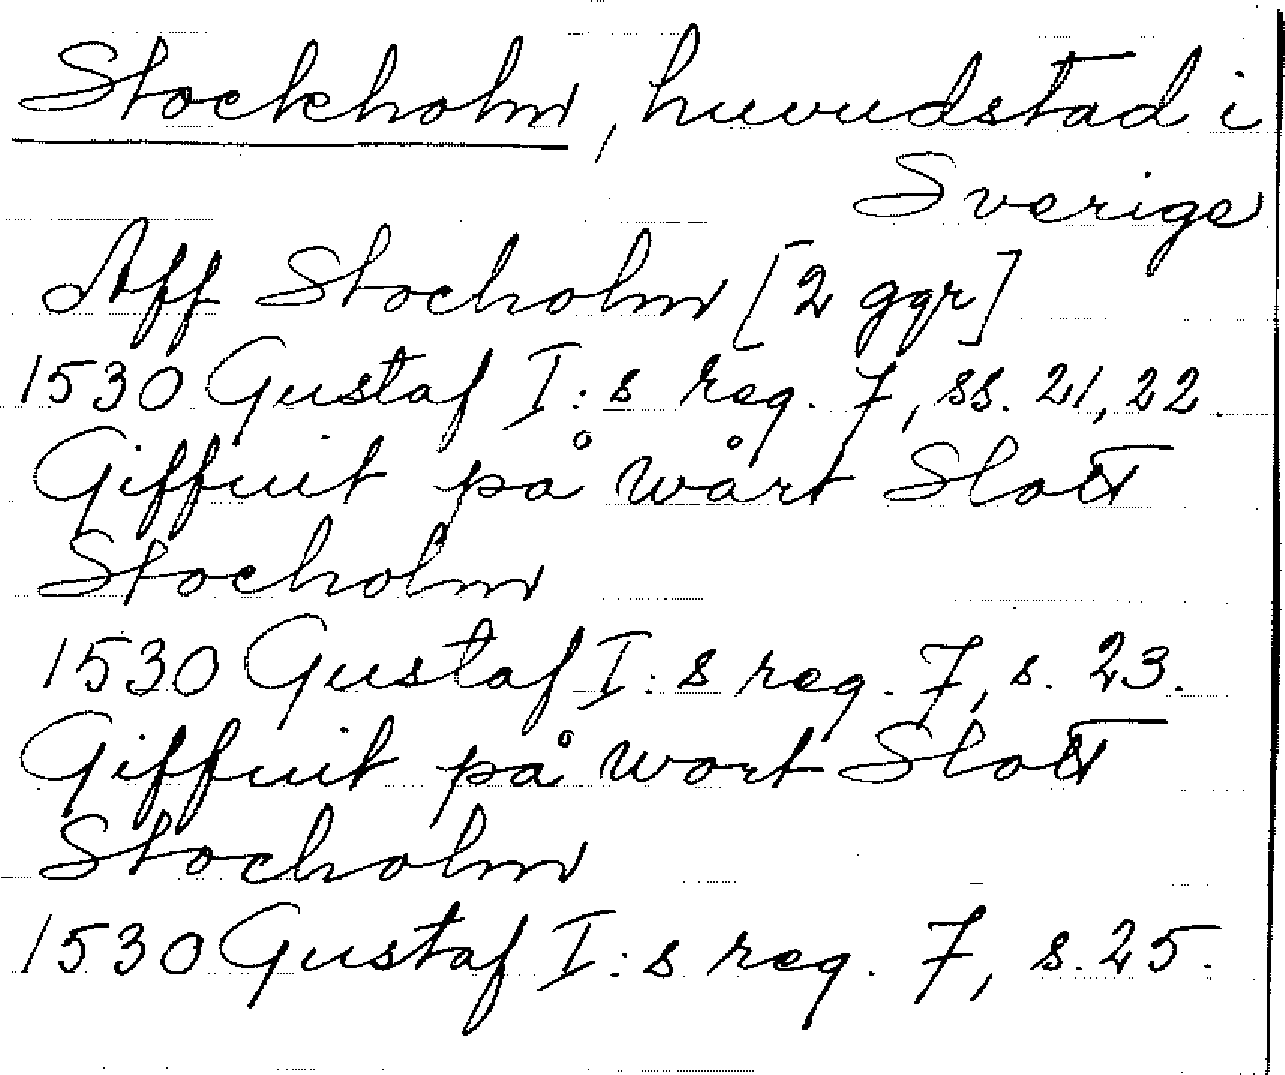 Stockholm, huvudstad i
Sverige
Aff Stocholm [2 ggr]
1530 Gustaf I:s reg. 7, ss. 21, 22.
Giffuit på wårt Slott
Stocholm
1530 Gustaf I:s reg. 7, s. 23.
Giffuit på wort Slott
Stocholm
1530 Gustaf I:s reg. 7, s. 25.